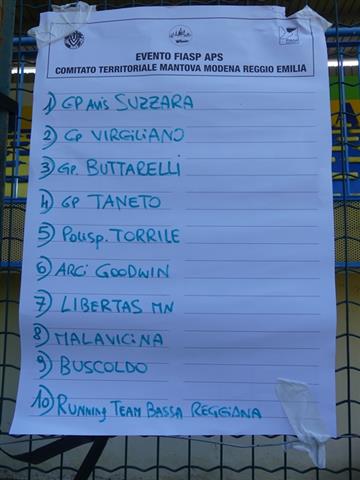 EVENTO FIASP APS
COMITATO TERRITORIALE MANTOVA MODENA REGGIO EMILIA
1) GP AVIS SUZZARA
2) GP VIRGILIANO
3) GP. BUTTARELLI
4) GP TANETO
5) POLISP. TORRILE
6) ARCI GOODWIN
7) LIBERTAS MN
8) MALAVICINA
9) BUSCOLDO
10) RUNNING TEAM BASSA REGGIANA